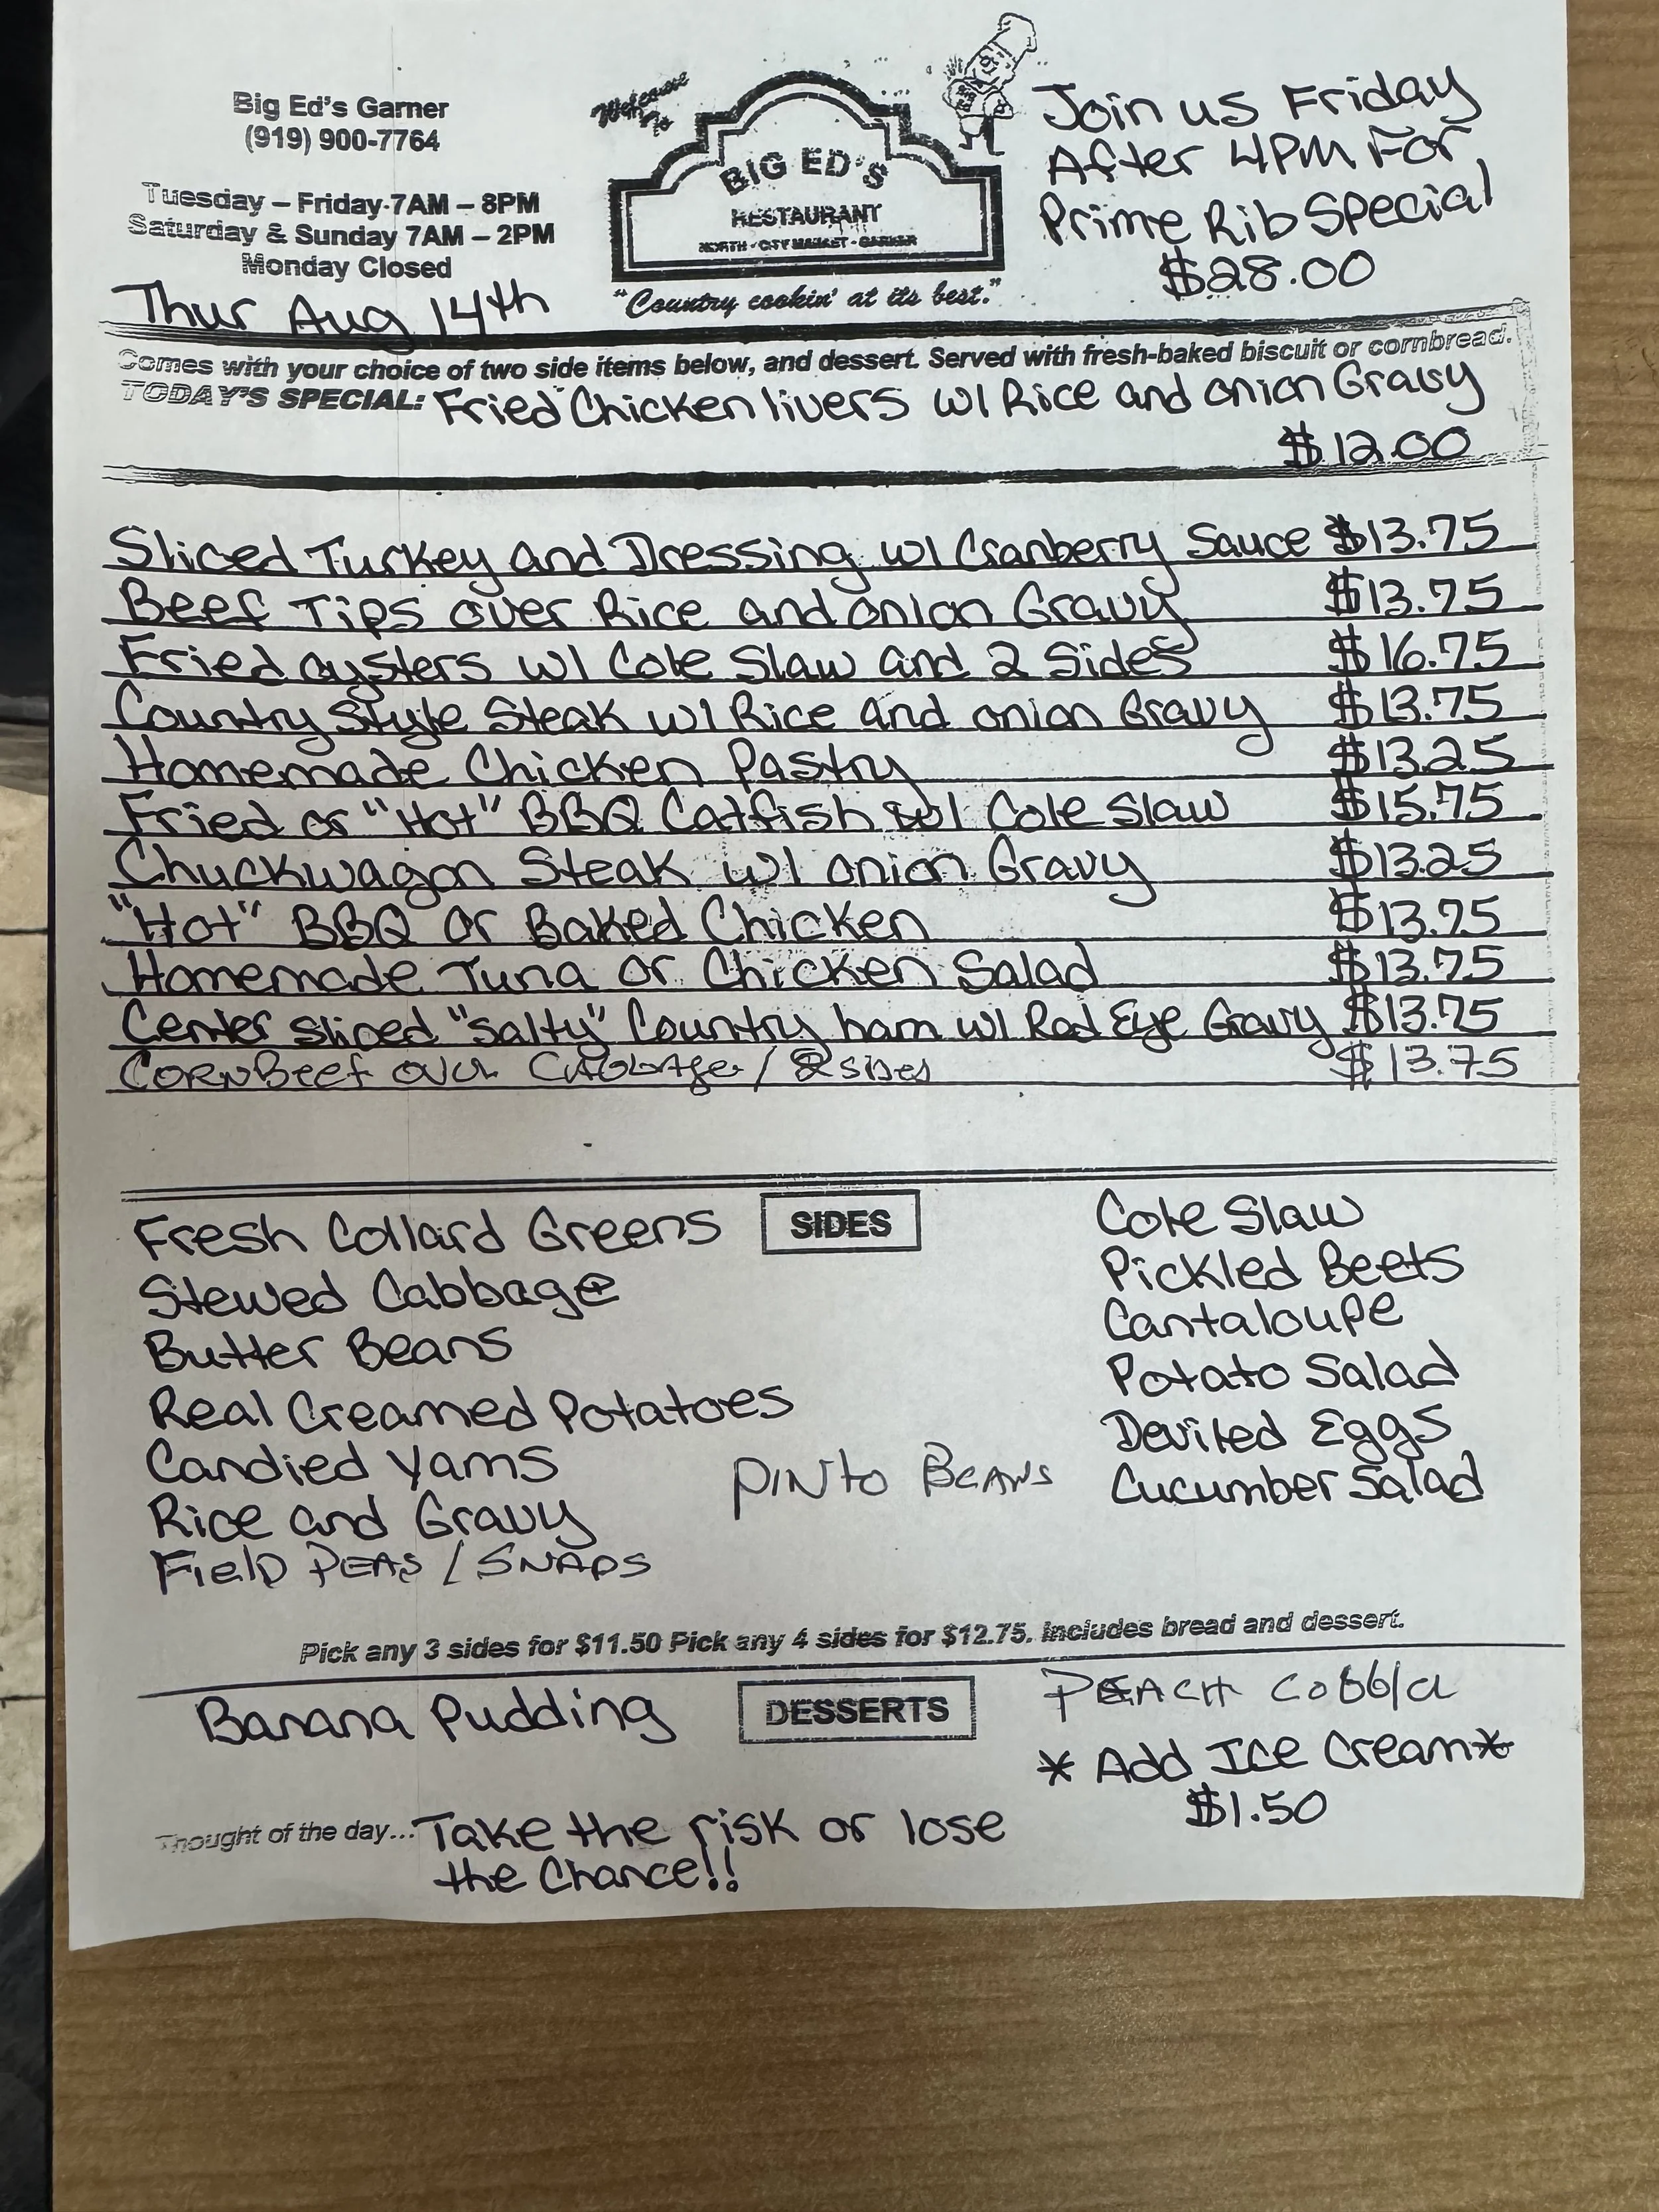 Big Ed's Garner
(919) 900-7764
Tuesday – Friday 7AM – 8PM
Saturday & Sunday 7AM – 2PM
Monday Closed
Thur Aug 14th
Welcome To
BIG ED'S
RESTAURANT
NORTH - CITY MARKET - GARNER
"Country cookin' at its best."
Join us Friday
After 4PM For
Prime Rib Special
$28.00
Comes with your choice of two side items below, and dessert. Served with fresh-baked biscuit or cornbread.
TODAY'S SPECIAL: Fried Chicken livers w/ Rice and onion Gravy
$12.00
Sliced Turkey and Dressing w/ Cranberry Sauce $13.75
Beef Tips over Rice and onion Gravy $13.75
Fried oysters w/ Cole Slaw and 2 Sides $16.75
Country Style Steak w/ Rice and onion Gravy $13.75
Homemade Chicken Pastry $13.25
Fried or "Hot" BBQ Catfish w/ Cole Slaw $15.75
Chuckwagon Steak w/ onion Gravy $13.25
"Hot" BBQ or Baked Chicken $13.75
Homemade Tuna or Chicken Salad $13.75
Center sliced "Salty" Country ham w/ Red Eye Gravy $13.75
Corn Beef over Cabbage / 2 sides $13.75
SIDES
Fresh Collard Greens
Stewed Cabbage
Butter Beans
Real Creamed Potatoes
Candied Yams
Rice and Gravy
Field Peas / Snaps
Pinto Beans
Cole Slaw
Pickled Beets
Cantaloupe
Potato Salad
Deviled Eggs
Cucumber Salad
Pick any 3 sides for $11.50 Pick any 4 sides for $12.75. Includes bread and dessert.
DESSERTS
Banana Pudding
Peach Cobbler
* Add Ice Cream *
$1.50
Thought of the day... Take the risk or lose
the Chance!!